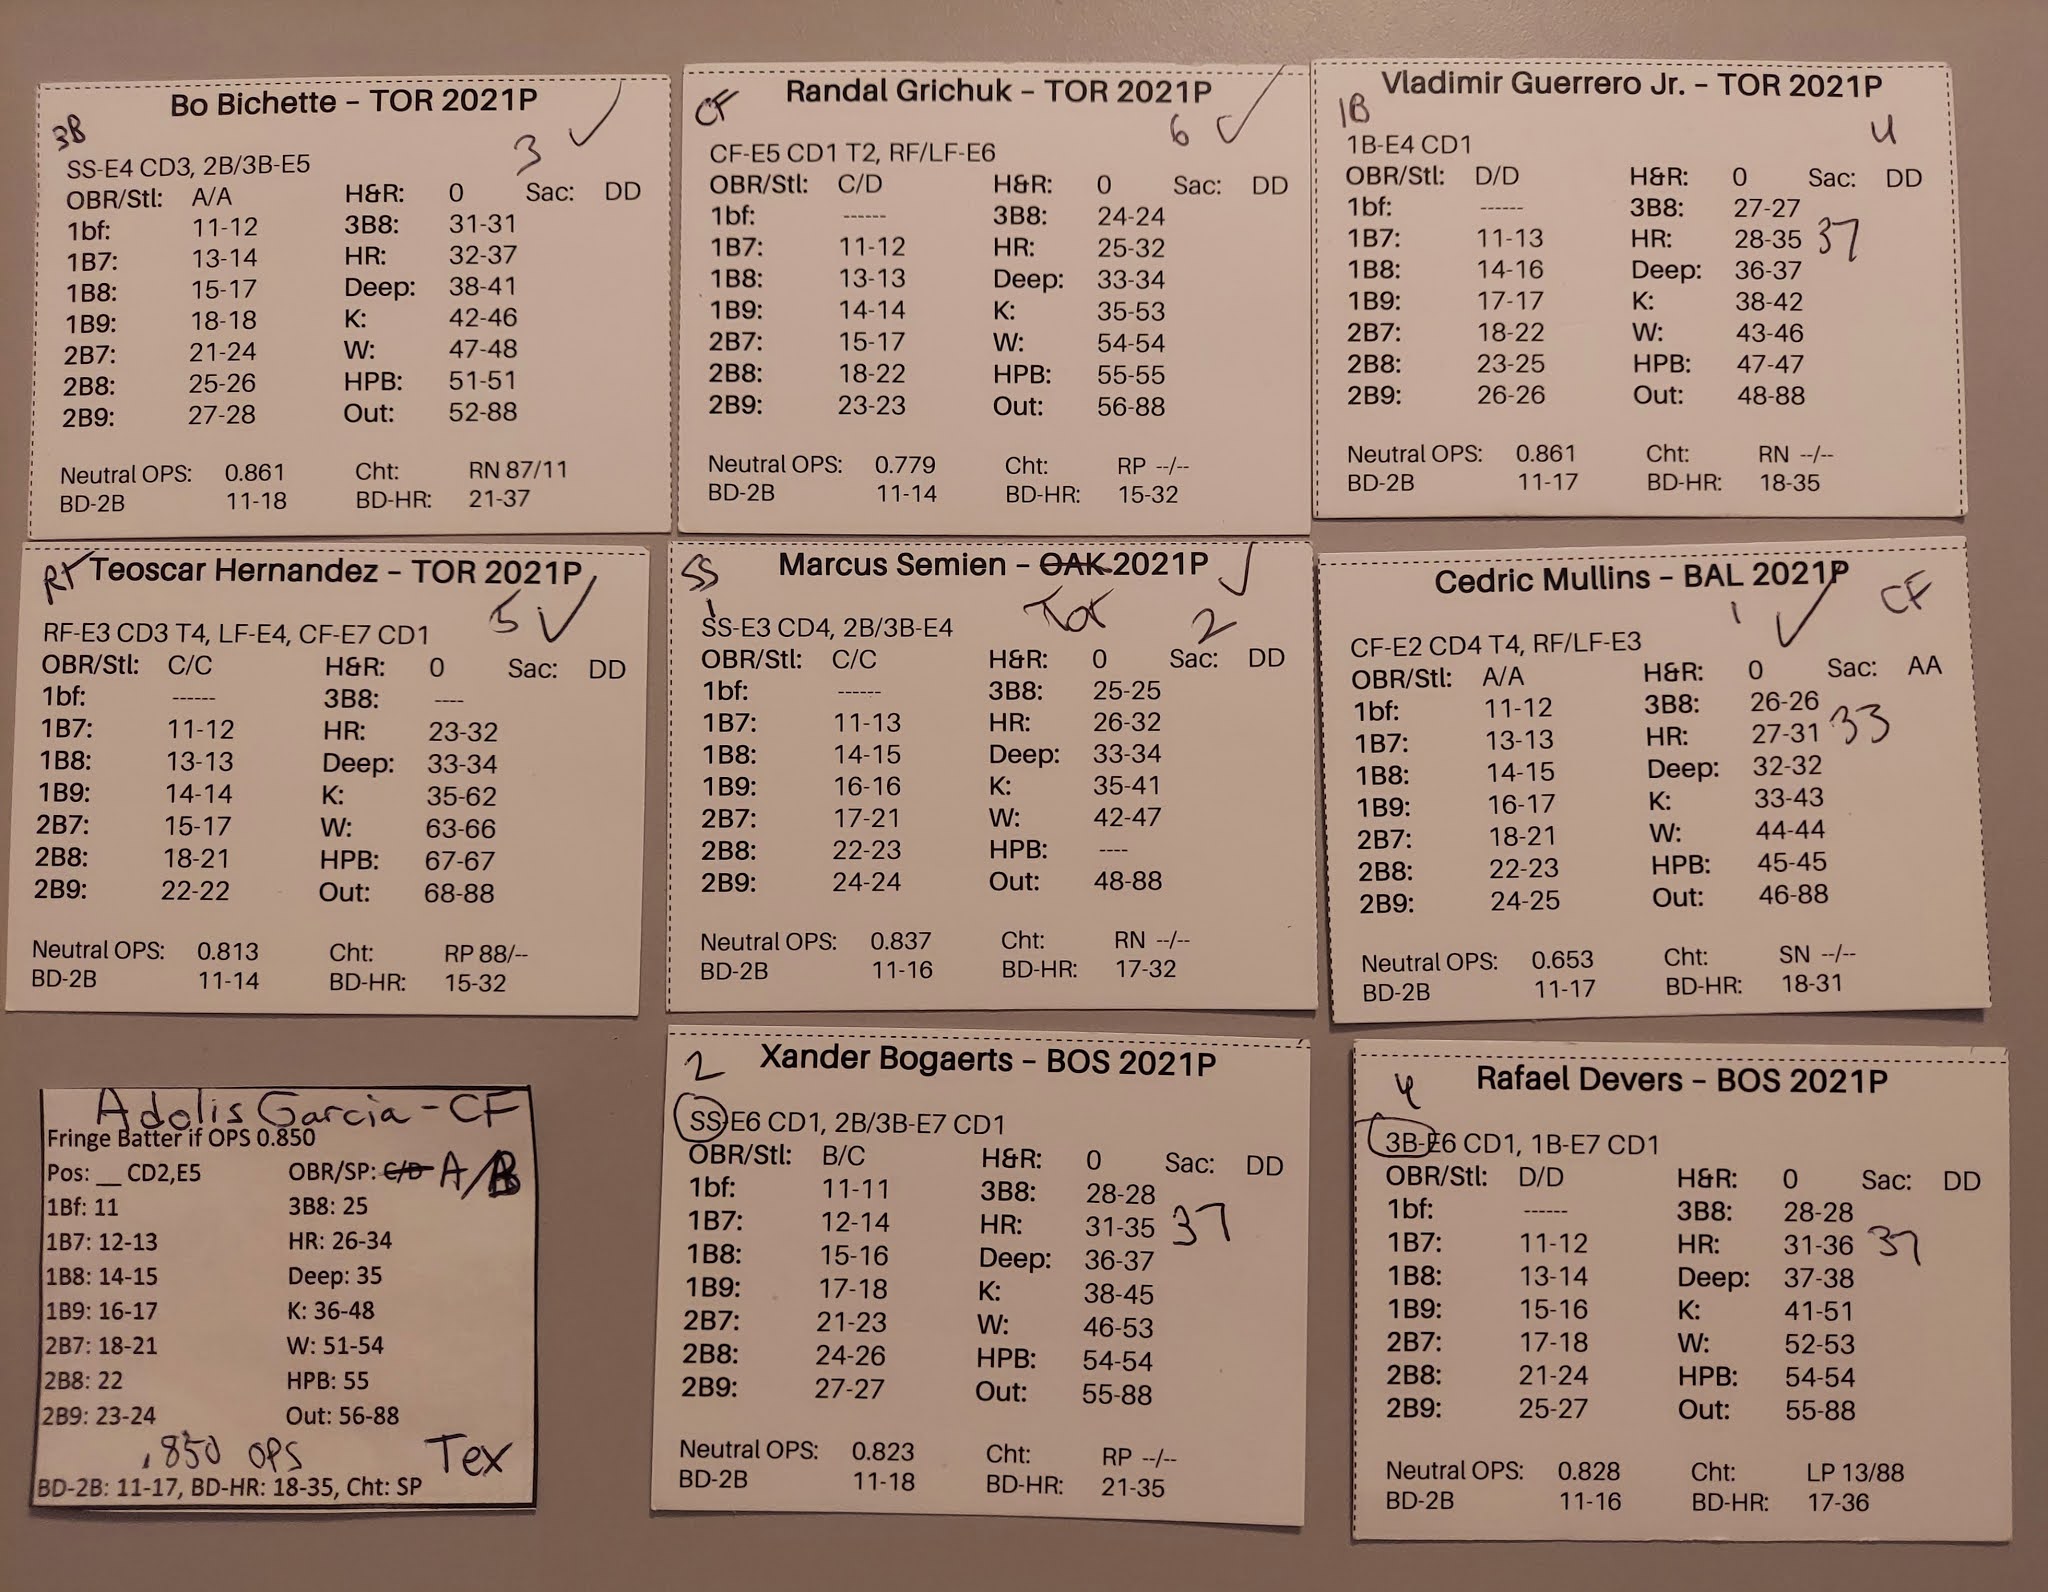 Bo Bichette – TOR 2021P
3B
3 ✓
SS-E4 CD3, 2B/3B-E5
OBR/Stl: A/A H&R: 0 Sac: DD
1bf: 11-12 3B8: 31-31
1B7: 13-14 HR: 32-37
1B8: 15-17 Deep: 38-41
1B9: 18-18 K: 42-46
2B7: 21-24 W: 47-48
2B8: 25-26 HPB: 51-51
2B9: 27-28 Out: 52-88
Neutral OPS: 0.861 Cht: RN 87/11
BD-2B 11-18 BD-HR: 21-37
Randal Grichuk – TOR 2021P
CF
6 ✓
CF-E5 CD1 T2, RF/LF-E6
OBR/Stl: C/D H&R: 0 Sac: DD
1bf: ------ 3B8: 24-24
1B7: 11-12 HR: 25-32
1B8: 13-13 Deep: 33-34
1B9: 14-14 K: 35-53
2B7: 15-17 W: 54-54
2B8: 18-22 HPB: 55-55
2B9: 23-23 Out: 56-88
Neutral OPS: 0.779 Cht: RP --/--
BD-2B 11-14 BD-HR: 15-32
Vladimir Guerrero Jr. – TOR 2021P
1B
4
1B-E4 CD1
OBR/Stl: D/D H&R: 0 Sac: DD
1bf: ------ 3B8: 27-27
1B7: 11-13 HR: 28-35 37
1B8: 14-16 Deep: 36-37
1B9: 17-17 K: 38-42
2B7: 18-22 W: 43-46
2B8: 23-25 HPB: 47-47
2B9: 26-26 Out: 48-88
Neutral OPS: 0.861 Cht: RN --/--
BD-2B 11-17 BD-HR: 18-35
Teoscar Hernandez – TOR 2021P
5 ✓
RF-E3 CD3 T4, LF-E4, CF-E7 CD1
OBR/Stl: C/C H&R: 0 Sac: DD
1bf: ------ 3B8: ----
1B7: 11-12 HR: 23-32
1B8: 13-13 Deep: 33-34
1B9: 14-14 K: 35-62
2B7: 15-17 W: 63-66
2B8: 18-21 HPB: 67-67
2B9: 22-22 Out: 68-88
Neutral OPS: 0.813 Cht: RP 88/--
BD-2B 11-14 BD-HR: 15-32
Marcus Semien – OAK 2021P
SS
Tor 2 ✓
SS-E3 CD4, 2B/3B-E4
OBR/Stl: C/C H&R: 0 Sac: DD
1bf: ------ 3B8: 25-25
1B7: 11-13 HR: 26-32
1B8: 14-15 Deep: 33-34
1B9: 16-16 K: 35-41
2B7: 17-21 W: 42-47
2B8: 22-23 HPB: ----
2B9: 24-24 Out: 48-88
Neutral OPS: 0.837 Cht: RN --/--
BD-2B 11-16 BD-HR: 17-32
Cedric Mullins – BAL 2021P
1 ✓ CF
CF-E2 CD4 T4, RF/LF-E3
OBR/Stl: A/A H&R: 0 Sac: AA
1bf: 11-12 3B8: 26-26
1B7: 13-13 HR: 27-31 33
1B8: 14-15 Deep: 32-32
1B9: 16-17 K: 33-43
2B7: 18-21 W: 44-44
2B8: 22-23 HPB: 45-45
2B9: 24-25 Out: 46-88
Neutral OPS: 0.653 Cht: SN --/--
BD-2B 11-17 BD-HR: 18-31
Adolis Garcia - CF
Fringe Batter if OPS 0.850
Pos: __ CD2,E5 OBR/SP: C/D A/B
1Bf: 11 3B8: 25
1B7: 12-13 HR: 26-34
1B8: 14-15 Deep: 35
1B9: 16-17 K: 36-48
2B7: 18-21 W: 51-54
2B8: 22 HPB: 55
2B9: 23-24 Out: 56-88
.850 OPS Tex
BD-2B: 11-17, BD-HR: 18-35, Cht: SP
2 Xander Bogaerts – BOS 2021P
SS-E6 CD1, 2B/3B-E7 CD1
OBR/Stl: B/C H&R: 0 Sac: DD
1bf: 11-11 3B8: 28-28
1B7: 12-14 HR: 31-35 37
1B8: 15-16 Deep: 36-37
1B9: 17-18 K: 38-45
2B7: 21-23 W: 46-53
2B8: 24-26 HPB: 54-54
2B9: 27-27 Out: 55-88
Neutral OPS: 0.823 Cht: RP --/--
BD-2B 11-18 BD-HR: 21-35
4 Rafael Devers – BOS 2021P
3B-E6 CD1, 1B-E7 CD1
OBR/Stl: D/D H&R: 0 Sac: DD
1bf: ------ 3B8: 28-28
1B7: 11-12 HR: 31-36 37
1B8: 13-14 Deep: 37-38
1B9: 15-16 K: 41-51
2B7: 17-18 W: 52-53
2B8: 21-24 HPB: 54-54
2B9: 25-27 Out: 55-88
Neutral OPS: 0.828 Cht: LP 13/88
BD-2B 11-16 BD-HR: 17-36